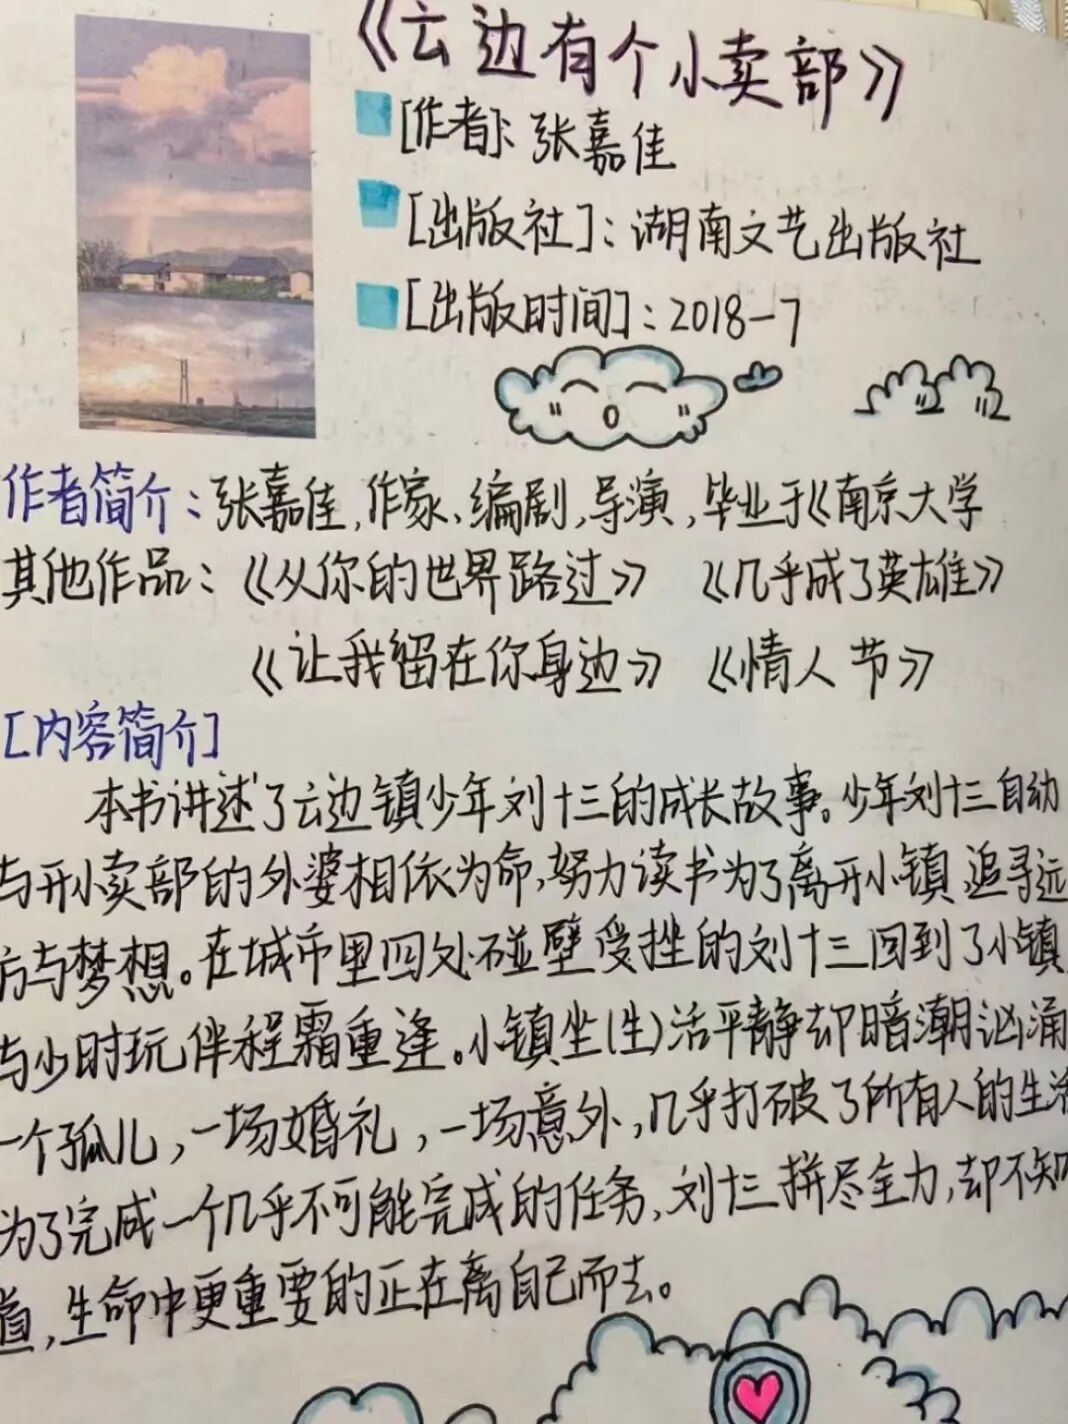 《云边有个小卖部》
[作者]：张嘉佳
[出版社]：湖南文艺出版社
[出版时间]：2018-7
作者简介：张嘉佳,作家、编剧,导演,毕业于《南京大学
其他作品：《从你的世界路过》 《几乎成了英雄》
《让我留在你身边》 《情人节》
[内容简介]
本书讲述了云边镇少年刘十三的成长故事。少年刘十三自幼
与开小卖部的外婆相依为命,努力读书为了离开小镇,追寻远
方与梦想。在城市里四处碰壁受挫的刘十三回到了小镇,
与少时玩伴程霜重逢。小镇坐(生)活平静却暗潮汹涌
一个孤儿,一场婚礼,一场意外,几乎打破了所有人的生活
为了完成一个几乎不可能完成的任务,刘十三拼尽全力,却不知
道,生命中更重要的正在离自己而去。